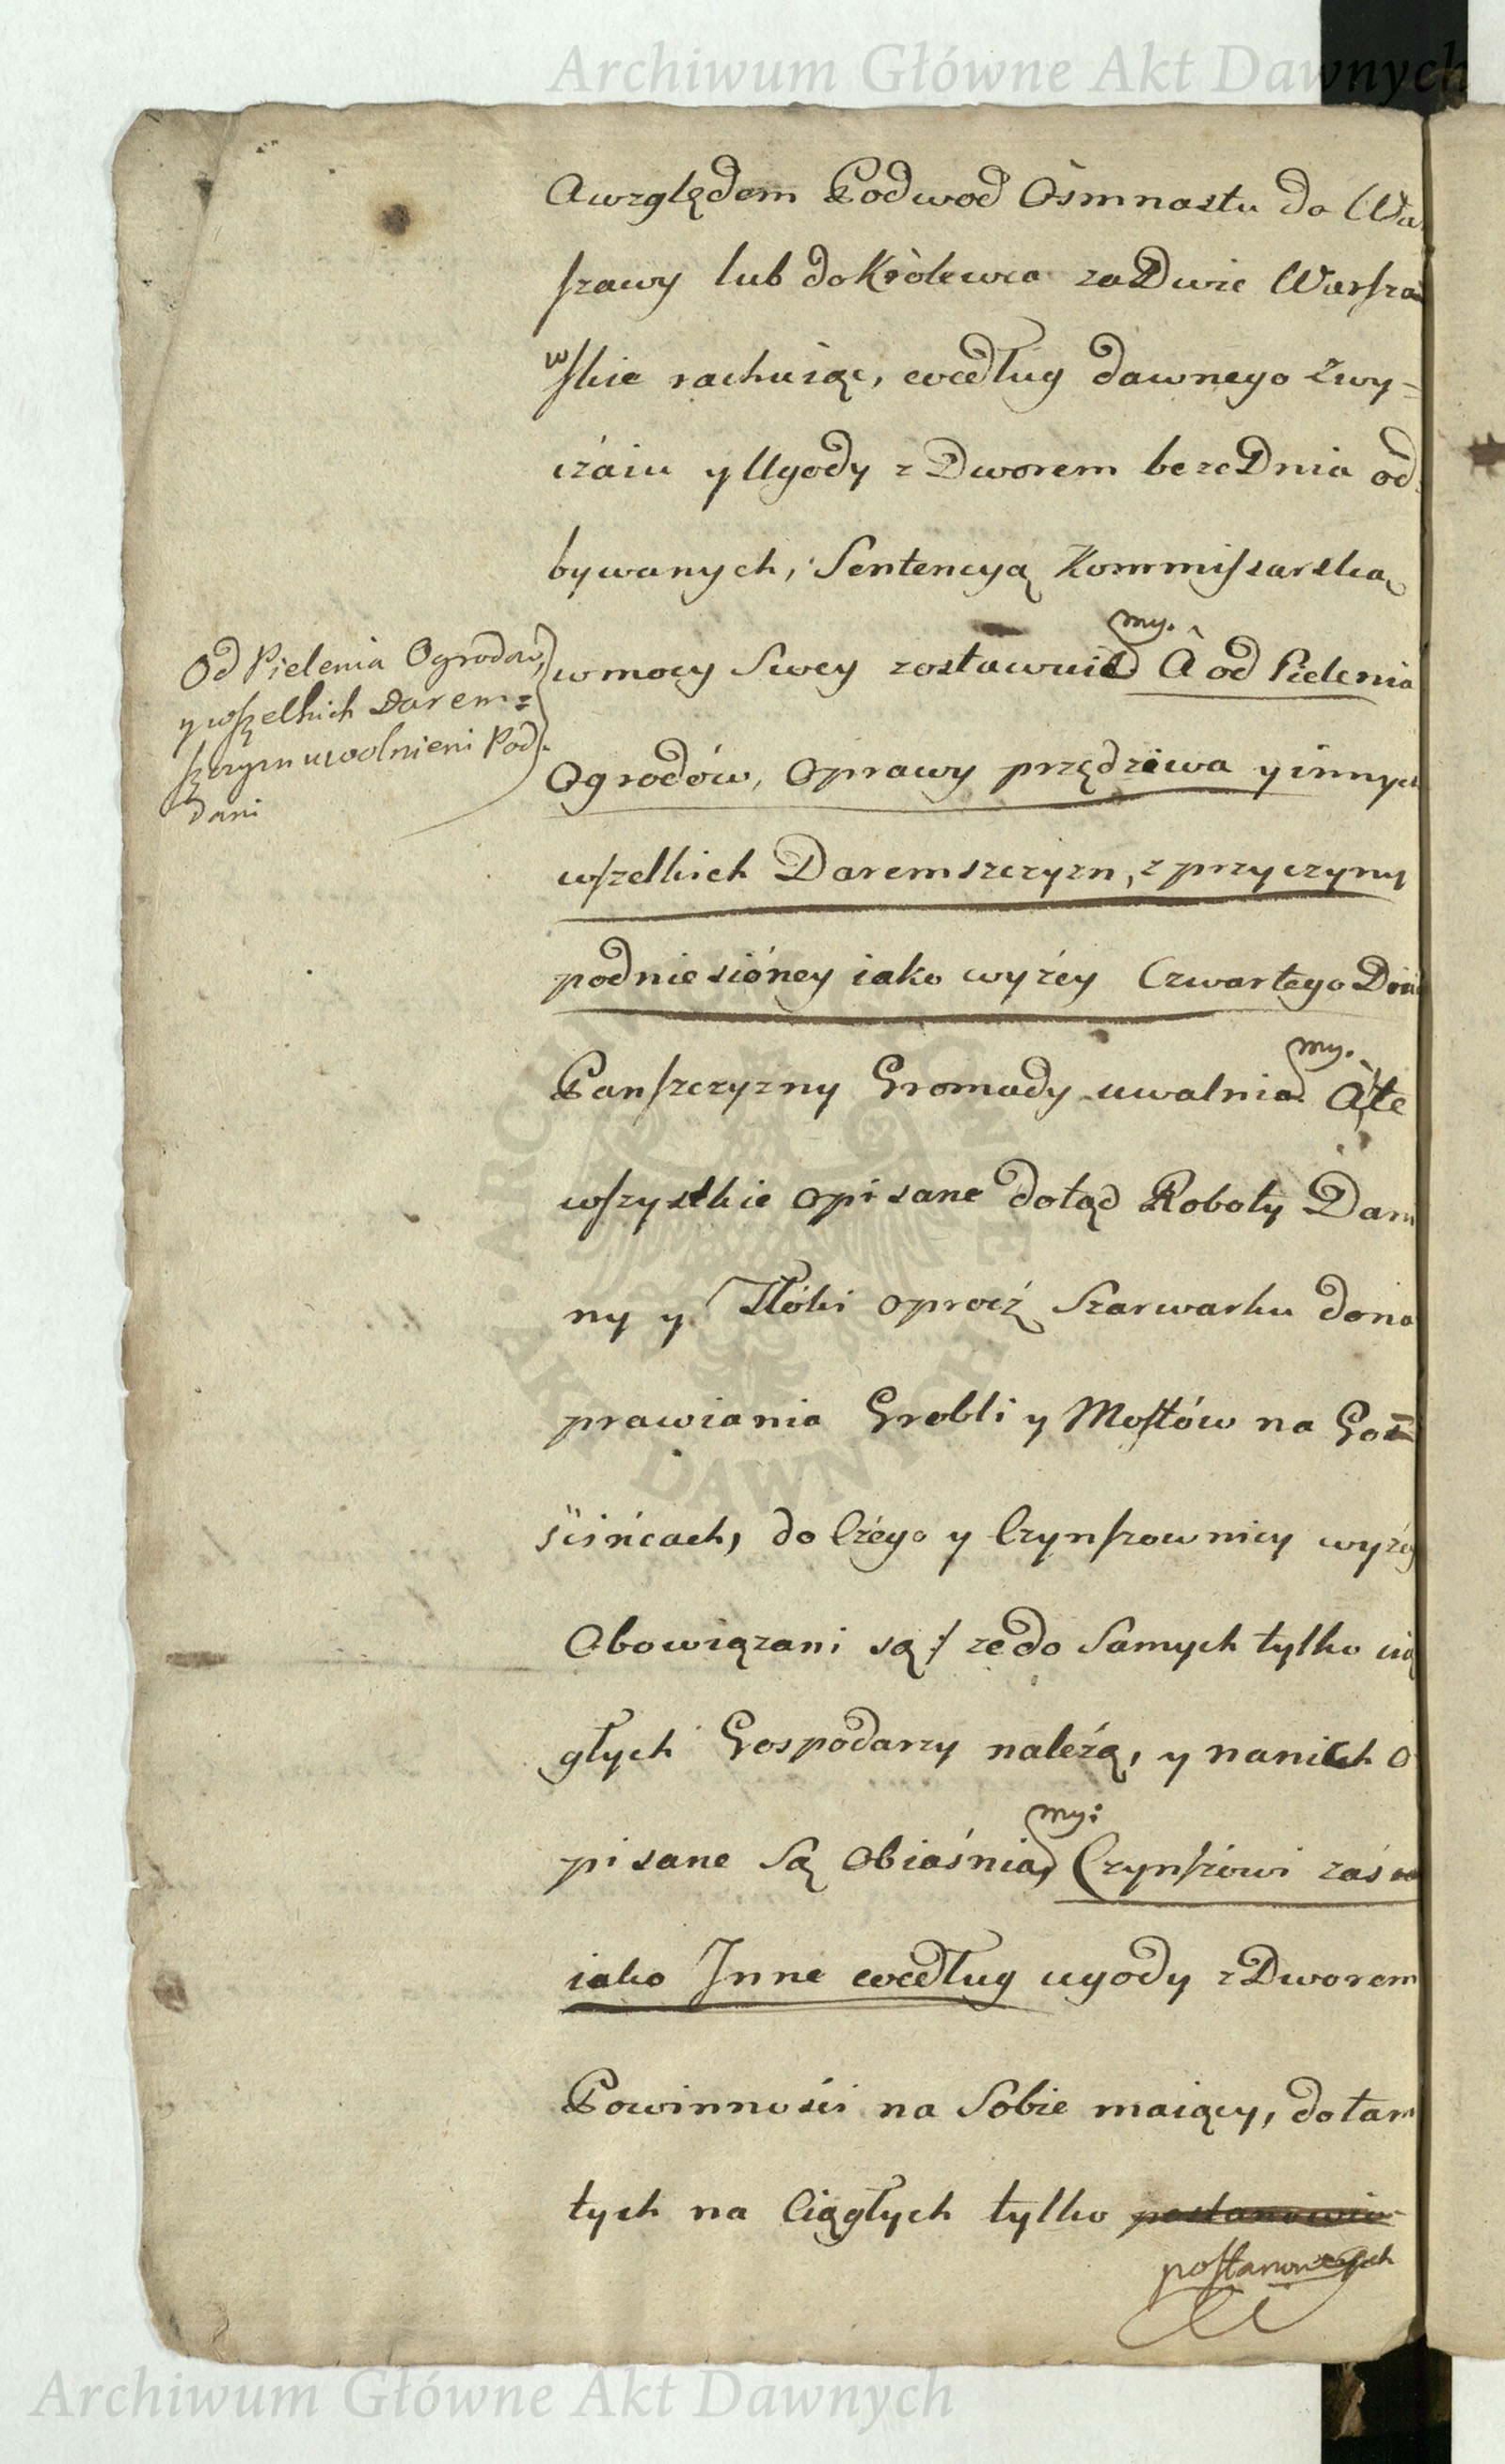 Archiwum Główne Akt Dawnych
A względem Podwod Osmnastu do Wa
rszawy lub do Królewca za Dwie Warsza
wskie rachuiąc, według dawnego zwy-
czáiu y Ugody z Dworem beze Dnia od
bywanych, Sentencyą Kommissarską
my.
w mocy Swey zostawuie A od Pielenia
Ogrodów, Oprawy przędziwa y innych
wszelkich Daremszczyzn, z przyczyny
podniesióney iako wyźey Czwartego Dnia
my.
Panszczyzny Gromady uwalnia A te
wszystkie opisane dotąd Roboty Dani
ny y Tłóki oprocź Szarwarku do na
prawiania Grobli y Mostów na Goś
ścińcach, do Czego y Czynszownicy wyźey
Obowiązani są / ze do Samych tylko cią
głych Gospodarzy naleźą, y na nich O
my:
pisane Są Obiaśnia, Czynszowi zaś
iako Inne według ugody z Dworem
Powinności na Sobie maiący, do tam
tych na Ciągłych tylko postanowio
postanowionych
Od Pielenia Ogrodów,
y wszelkich Darem=
szczyzn uwolnieni Pod
dani
Archiwum Główne Akt Dawnych